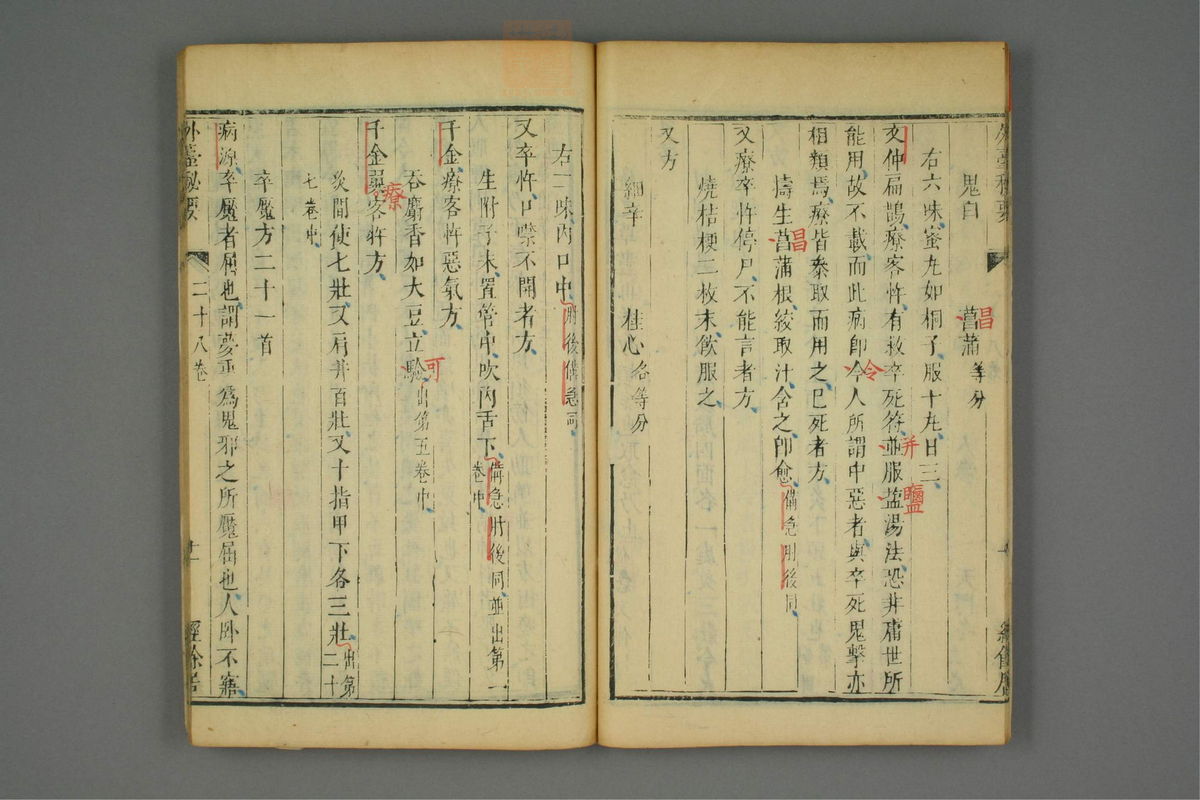 鬼臼 菖蒲等分
昌
右六味蜜丸如桐子服十丸日三
又仲扁鵲療客忤有救卒死符並服盐湯法恐非庸世所
并
鹽
能用故不載而此病即今人所謂中惡者與卒死鬼擊亦
令
相類焉療皆叅取而用之巳死者方
擣生菖蒲根絞取汁含之即愈備急肘後同
昌
又療卒忤停尸不能言者方
燒桔梗二枚末飲服之
又方
細辛 桂心各等分
右二味內口中肘後備急同
又卒忤口噤不開者方
生附子末置管中吹內舌下備急肘後同並出第一
卷中
千金療客忤惡氣方
吞麝香如大豆立驗出第五卷中
可
千金翼客忤方
療
灸間使七壯又肩井百壯又十指甲下各三壯出第
二十
七卷中
卒魘方二十一首
病源卒魘者屈也謂夢裏為鬼邪之所魘屈也人卧不寤
外臺秘要 二十八卷 十一 經餘居